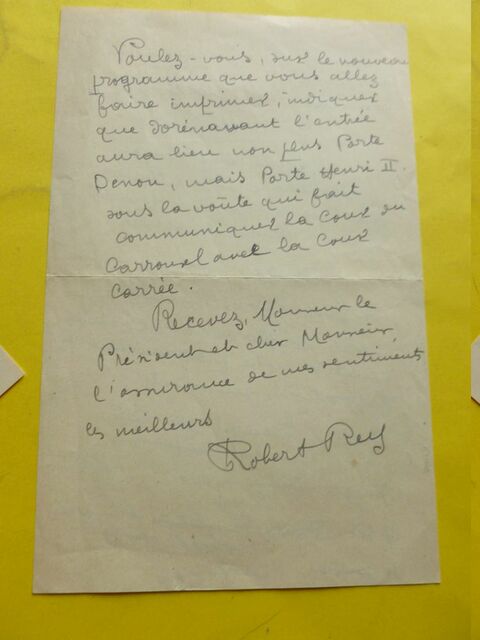 Voulez-vous, sur le nouveau
programme que vous allez
faire imprimer, indiquer
que dorénavant l'entrée
aura lieu non plus Porte
Denon, mais Porte Henri II.
sous la voûte qui fait
communiquer la Cour du
Carrousel avec la Cour
Carrée.
Recevez, Monsieur le
Président et cher Monsieur,
l'assurance de mes sentiments
les meilleurs
Robert Rey